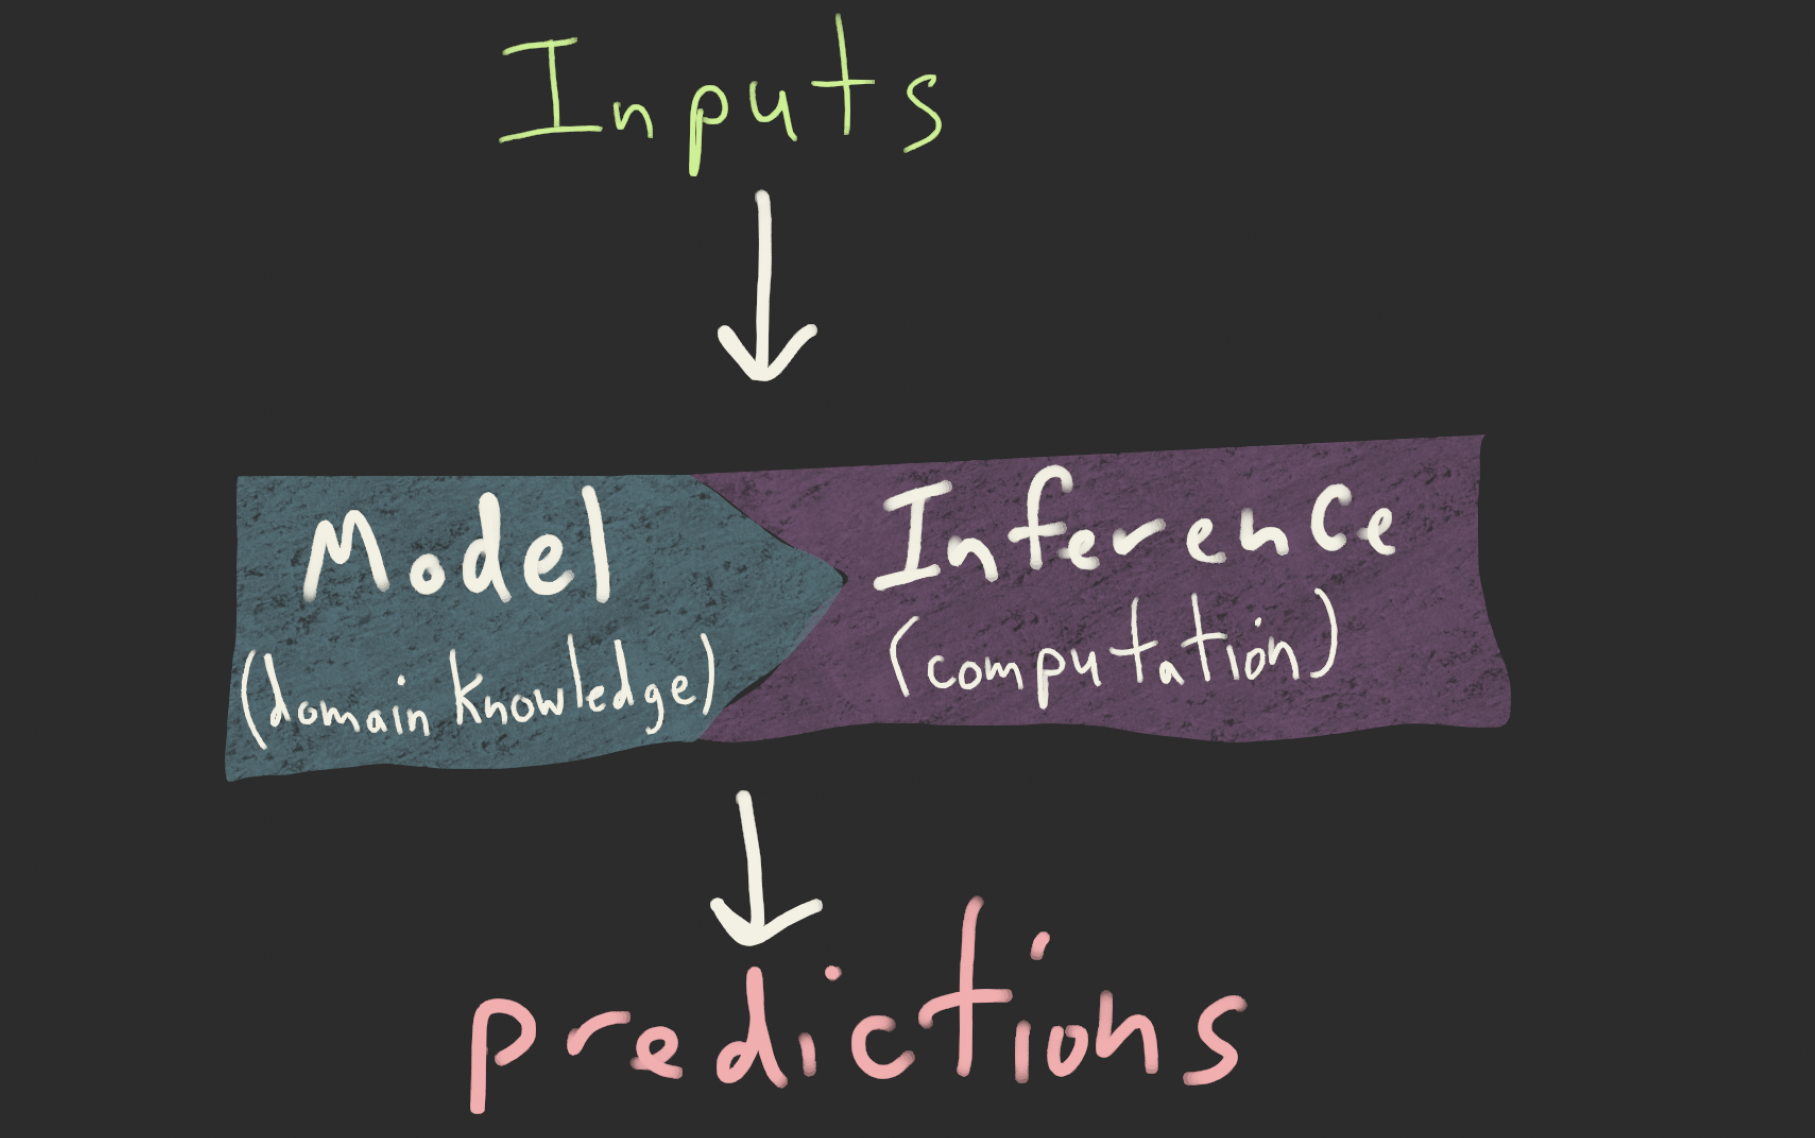 Inputs
Model
(domain knowledge)
Inference
(computation)
predictions